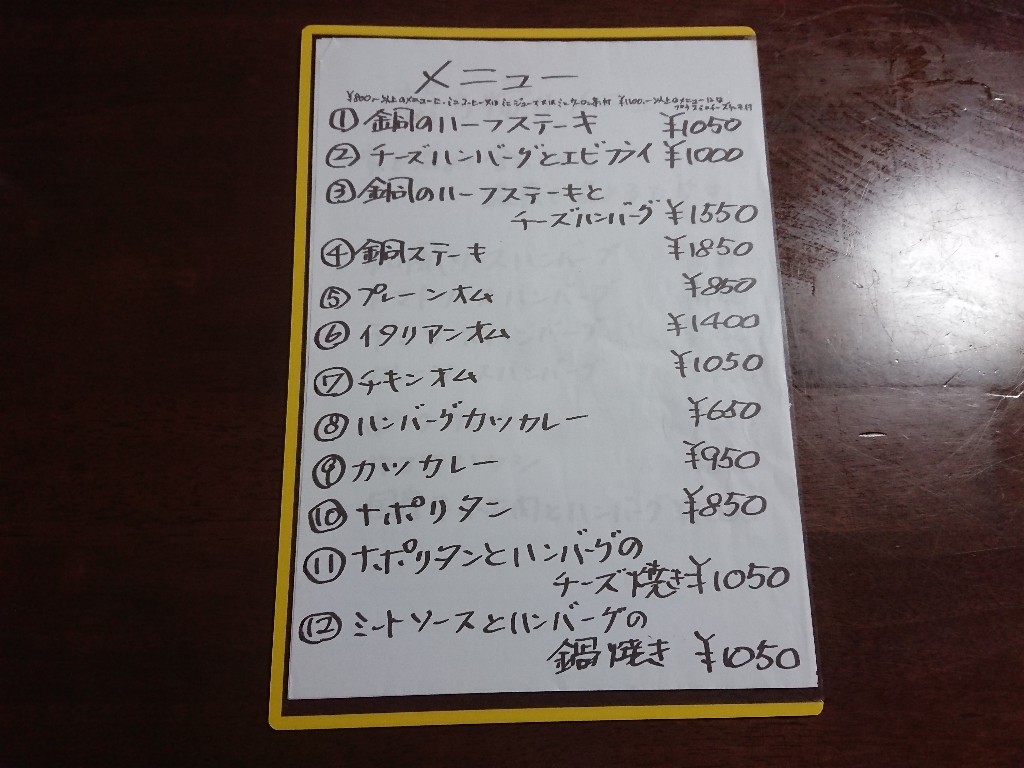 メニュー
¥800.-以上のメニューに、ミニコーヒー又はミニジュース又はミニ
¥1100.-以上のメニューには
① 銅のハーフステーキ ¥1050
② チーズハンバーグとエビフライ ¥1000
③ 銅のハーフステーキと
チーズハンバーグ ¥1550
④ 銅ステーキ ¥1850
⑤ プレーンオム ¥850
⑥ イタリアンオム ¥1400
⑦ チキンオム ¥1050
⑧ ハンバーグカツカレー ¥650
⑨ カツカレー ¥950
⑩ ナポリタン ¥850
⑪ ナポリタンとハンバーグの
チーズ焼き ¥1050
⑫ ミートソースとハンバーグの
鍋焼き ¥1050